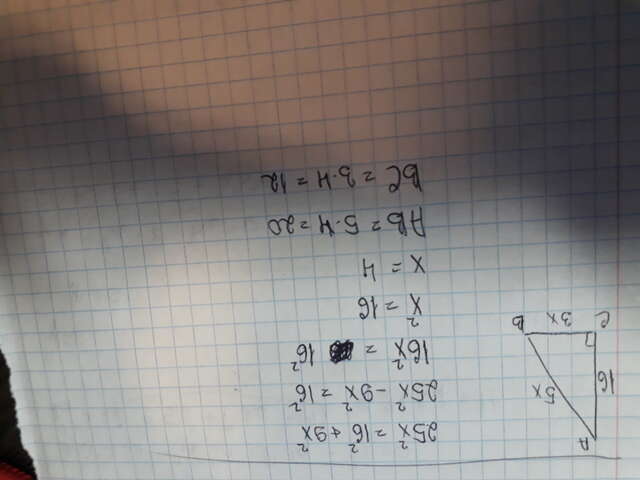 A
16
5x
C
3x
B
25x² = 16² + 9x²
25x² - 9x² = 16²
16x² = 16²
x² = 16
x = 4
AB = 5·4 = 20
BC = 3·4 = 12